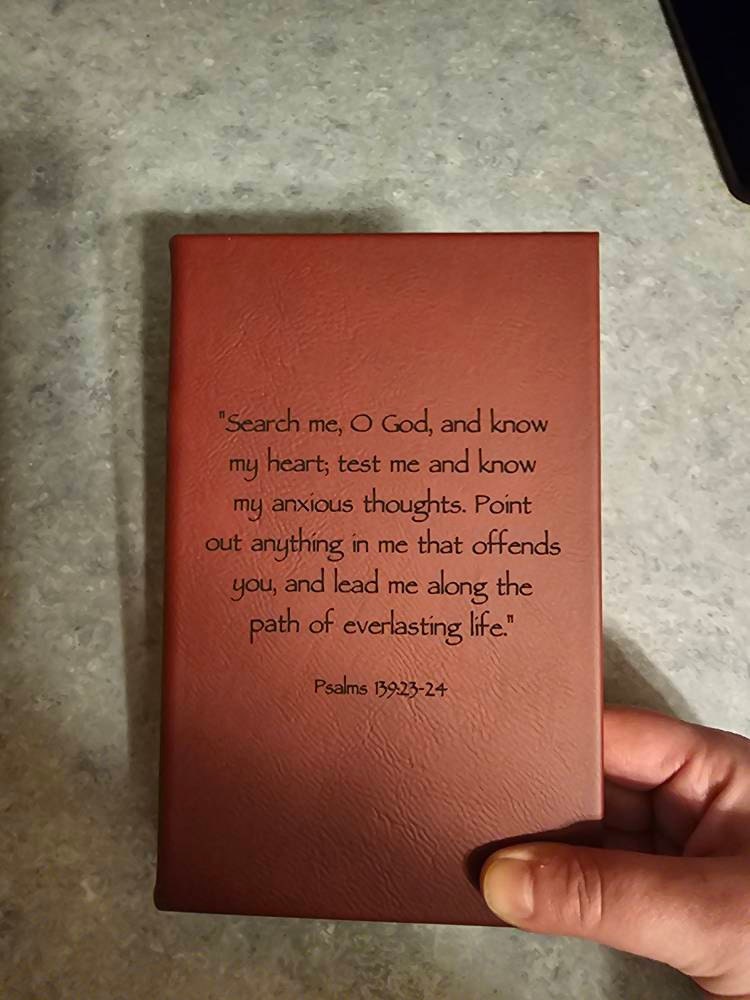 "Search me, O God, and know
my heart; test me and know
my anxious thoughts. Point
out anything in me that offends
you, and lead me along the
path of everlasting life."
Psalms 139:23-24